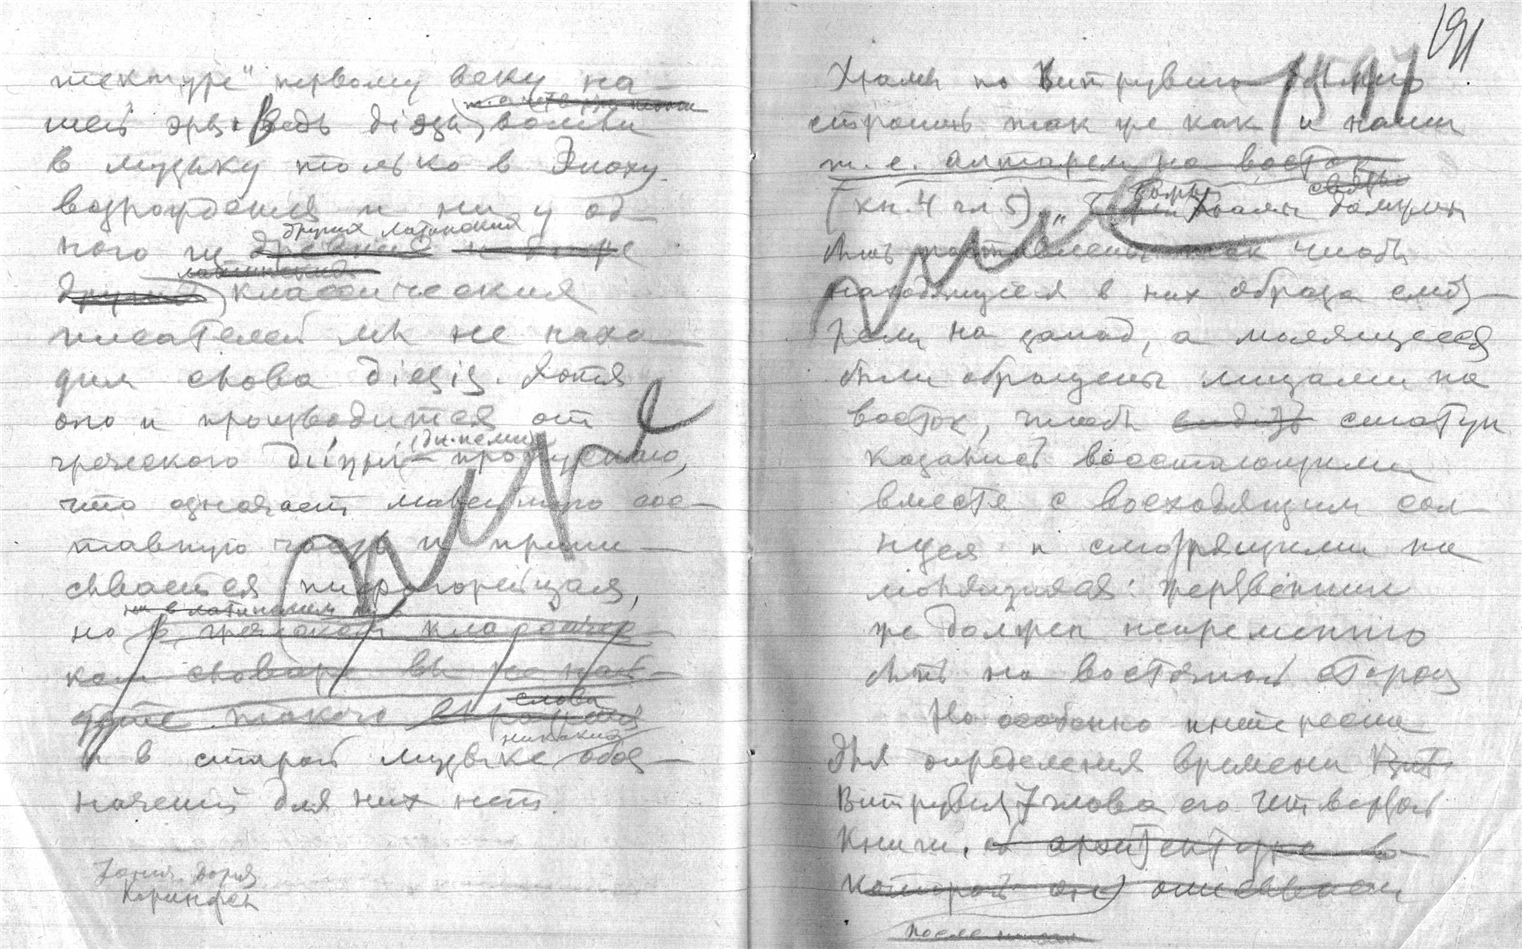 тектуре" первому веку на-
шей эры. Ведь діэзы вошли
в музыку только в Эпоху
возрождения и ни у од-
ного из других латинских
классических
писателей мы не нахо-
дим слова діезіз. Хотя
оно и производится от
греческого
что означает
тавную часть и припи-
сывается пифагорейцам,
но в греческом классичес-
ком словаре вы не най-
дете такого слова
и в старой музыке никаких обоз-
начений для них нет
Иония Дория
Коринфея
191
Храмы по Витрувию
строить так же как и наши
т.е. алтарем на восток
(кн. 4 гл 5). „ Храмы должны
быть поставлены так чтобы
находящиеся в них образа смот-
рели на запад, а молящиеся
были обращены лицами на
восток, чтобы статуи
казались восстающими
вместе с восходящим сол-
нцем и смотрящими на
молящихся: жертвенник
же должен непременно
быть на восточной стороне
Но особенно интересна
для определения времени
Витрувия 7 глава его четвертой
Книги. об архитектуре в
которой он описывает
после